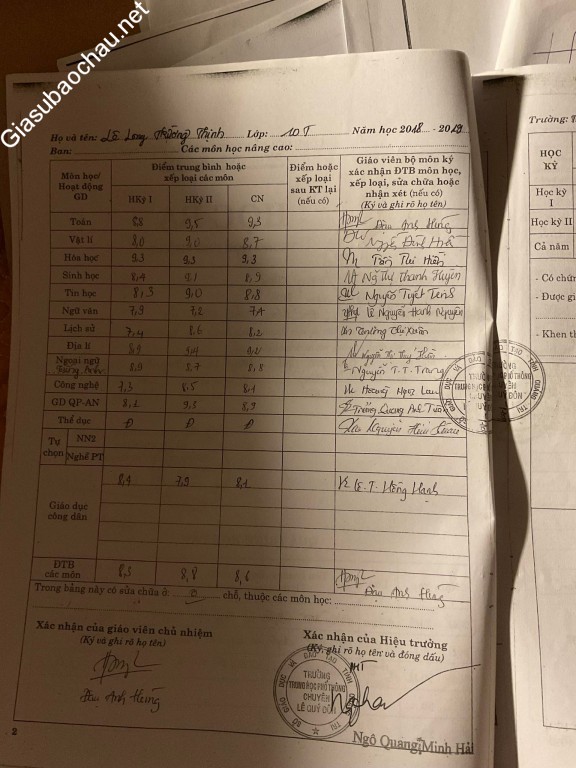 Giasubaochau.net
Họ và tên: Lê Long Trường Thịnh Lớp: 10T Năm học 2018 - 2019
Ban: Các môn học nâng cao:
Môn học/ Hoạt động GD
Điểm trung bình hoặc xếp loại các môn
HKỳ I HKỳ II CN
Điểm hoặc xếp loại sau KT lại (nếu có)
Giáo viên bộ môn ký xác nhận ĐTB môn học, xếp loại, sửa chữa hoặc nhận xét (nếu có)
(Ký và ghi rõ họ tên)
Toán 8,8 9,5 9,3 Đào Anh Hùng
Vật lí 8,0 9,0 8,7 Đình
Hóa học 9,3 9,3 9,3 Hiền
Sinh học 8,4 9,1 8,9 Thị Thanh Huyền
Tin học 8,3 9,0 8,8 Nguyễn Tuyết
Ngữ văn 7,9 7,2 7,4 Lê Nguyên Hạnh Nguyên
Lịch sử 7,4 8,6 8,2
Địa lí 8,9 9,2 Nguyễn Thị
Ngoại ngữ Tiếng Anh 8,9 8,7 8,8 Nguyễn T. T. Trang
Công nghệ 7,3 8,5 8,1 Hoàng Ngọc Lan
GD QP-AN 8,1 9,3 8,9 Quang Anh
Thể dục Đ Đ Đ Nguyễn Hữu
Tự chọn
NN2
Nghề PT
Giáo dục công dân 8,4 7,9 8,1 Lê.T. Hồng Hạnh
ĐTB các môn 8,3 8,8 8,6 Đào Anh Hùng
Trong bảng này có sửa chữa ở: 0 chỗ, thuộc các môn học:
Xác nhận của giáo viên chủ nhiệm
(Ký và ghi rõ họ tên)
Đào Anh Hùng
Xác nhận của Hiệu trưởng
(Ký, ghi rõ họ tên và đóng dấu)
TRƯỜNG
TRUNG HỌC PHỔ THÔNG
CHUYÊN
LÊ QUÝ ĐÔN
Ngô Quang Minh Hải
2
Trường:
HỌC KỲ
Học kỳ I
Học kỳ II
Cả năm
- Có chứn
- Được gi
- Khen th